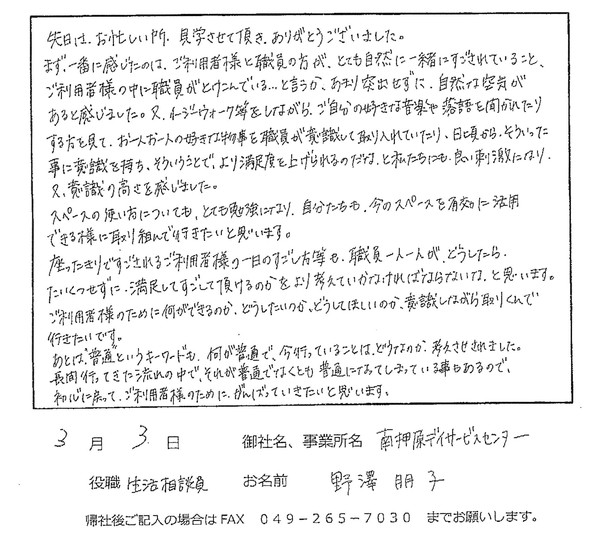 先日は、お忙しい所、見学させて頂き、ありがとうございました。
まず、一番に感じたのは、ご利用者様と職員の方が、とても自然に一緒にすごされていること、
ご利用者様の中に職員がとけこんでいる…と言うか、あまり突出せずに、自然な空気が
あると感じました。又、イージーウォーク等をしながら、ご自分の好きな音楽や落語を聞かれたり
する方を見て、お一人お一人の好きな物事を職員が意識して取り入れていたり、日頃から、そういった
事に意識を持ち、そういうことで、より満足度を上げられるのだな、と私たちにも良い刺激になり、
又、意識の高さを感じました。
スペースの使い方についても、とても勉強になり、自分たちも、今のスペースを有効に活用
できる様に取り組んで行きたいと思います。
座ったきりですごされるご利用者様の一日のすごし方等も、職員一人一人が、どうしたら、
たいくつせずに、満足してすごして頂けるのかをより考えていかなければならないな、と思います。
ご利用者様のために何ができるのか、どうしたいのか、どうしてほしいのか、意識しながら取りくんで
行きたいです。
あとは、"普通"というキーワードも、何が普通で、今行っていることは、どうなのか、考えさせされました。
長間行ってきた流れの中で、それが普通でなくとも普通になってしまっている事もあるので、
初心に戻って、ご利用者様のために、がんばっていきたいと思います。
3 月 3 日 御社名、事業所名 南押原デイサービスセンター
役職 生活相談員 お名前 野澤 朋子
帰社後ご記入の場合はFAX 049-265-7030 までお願いします。